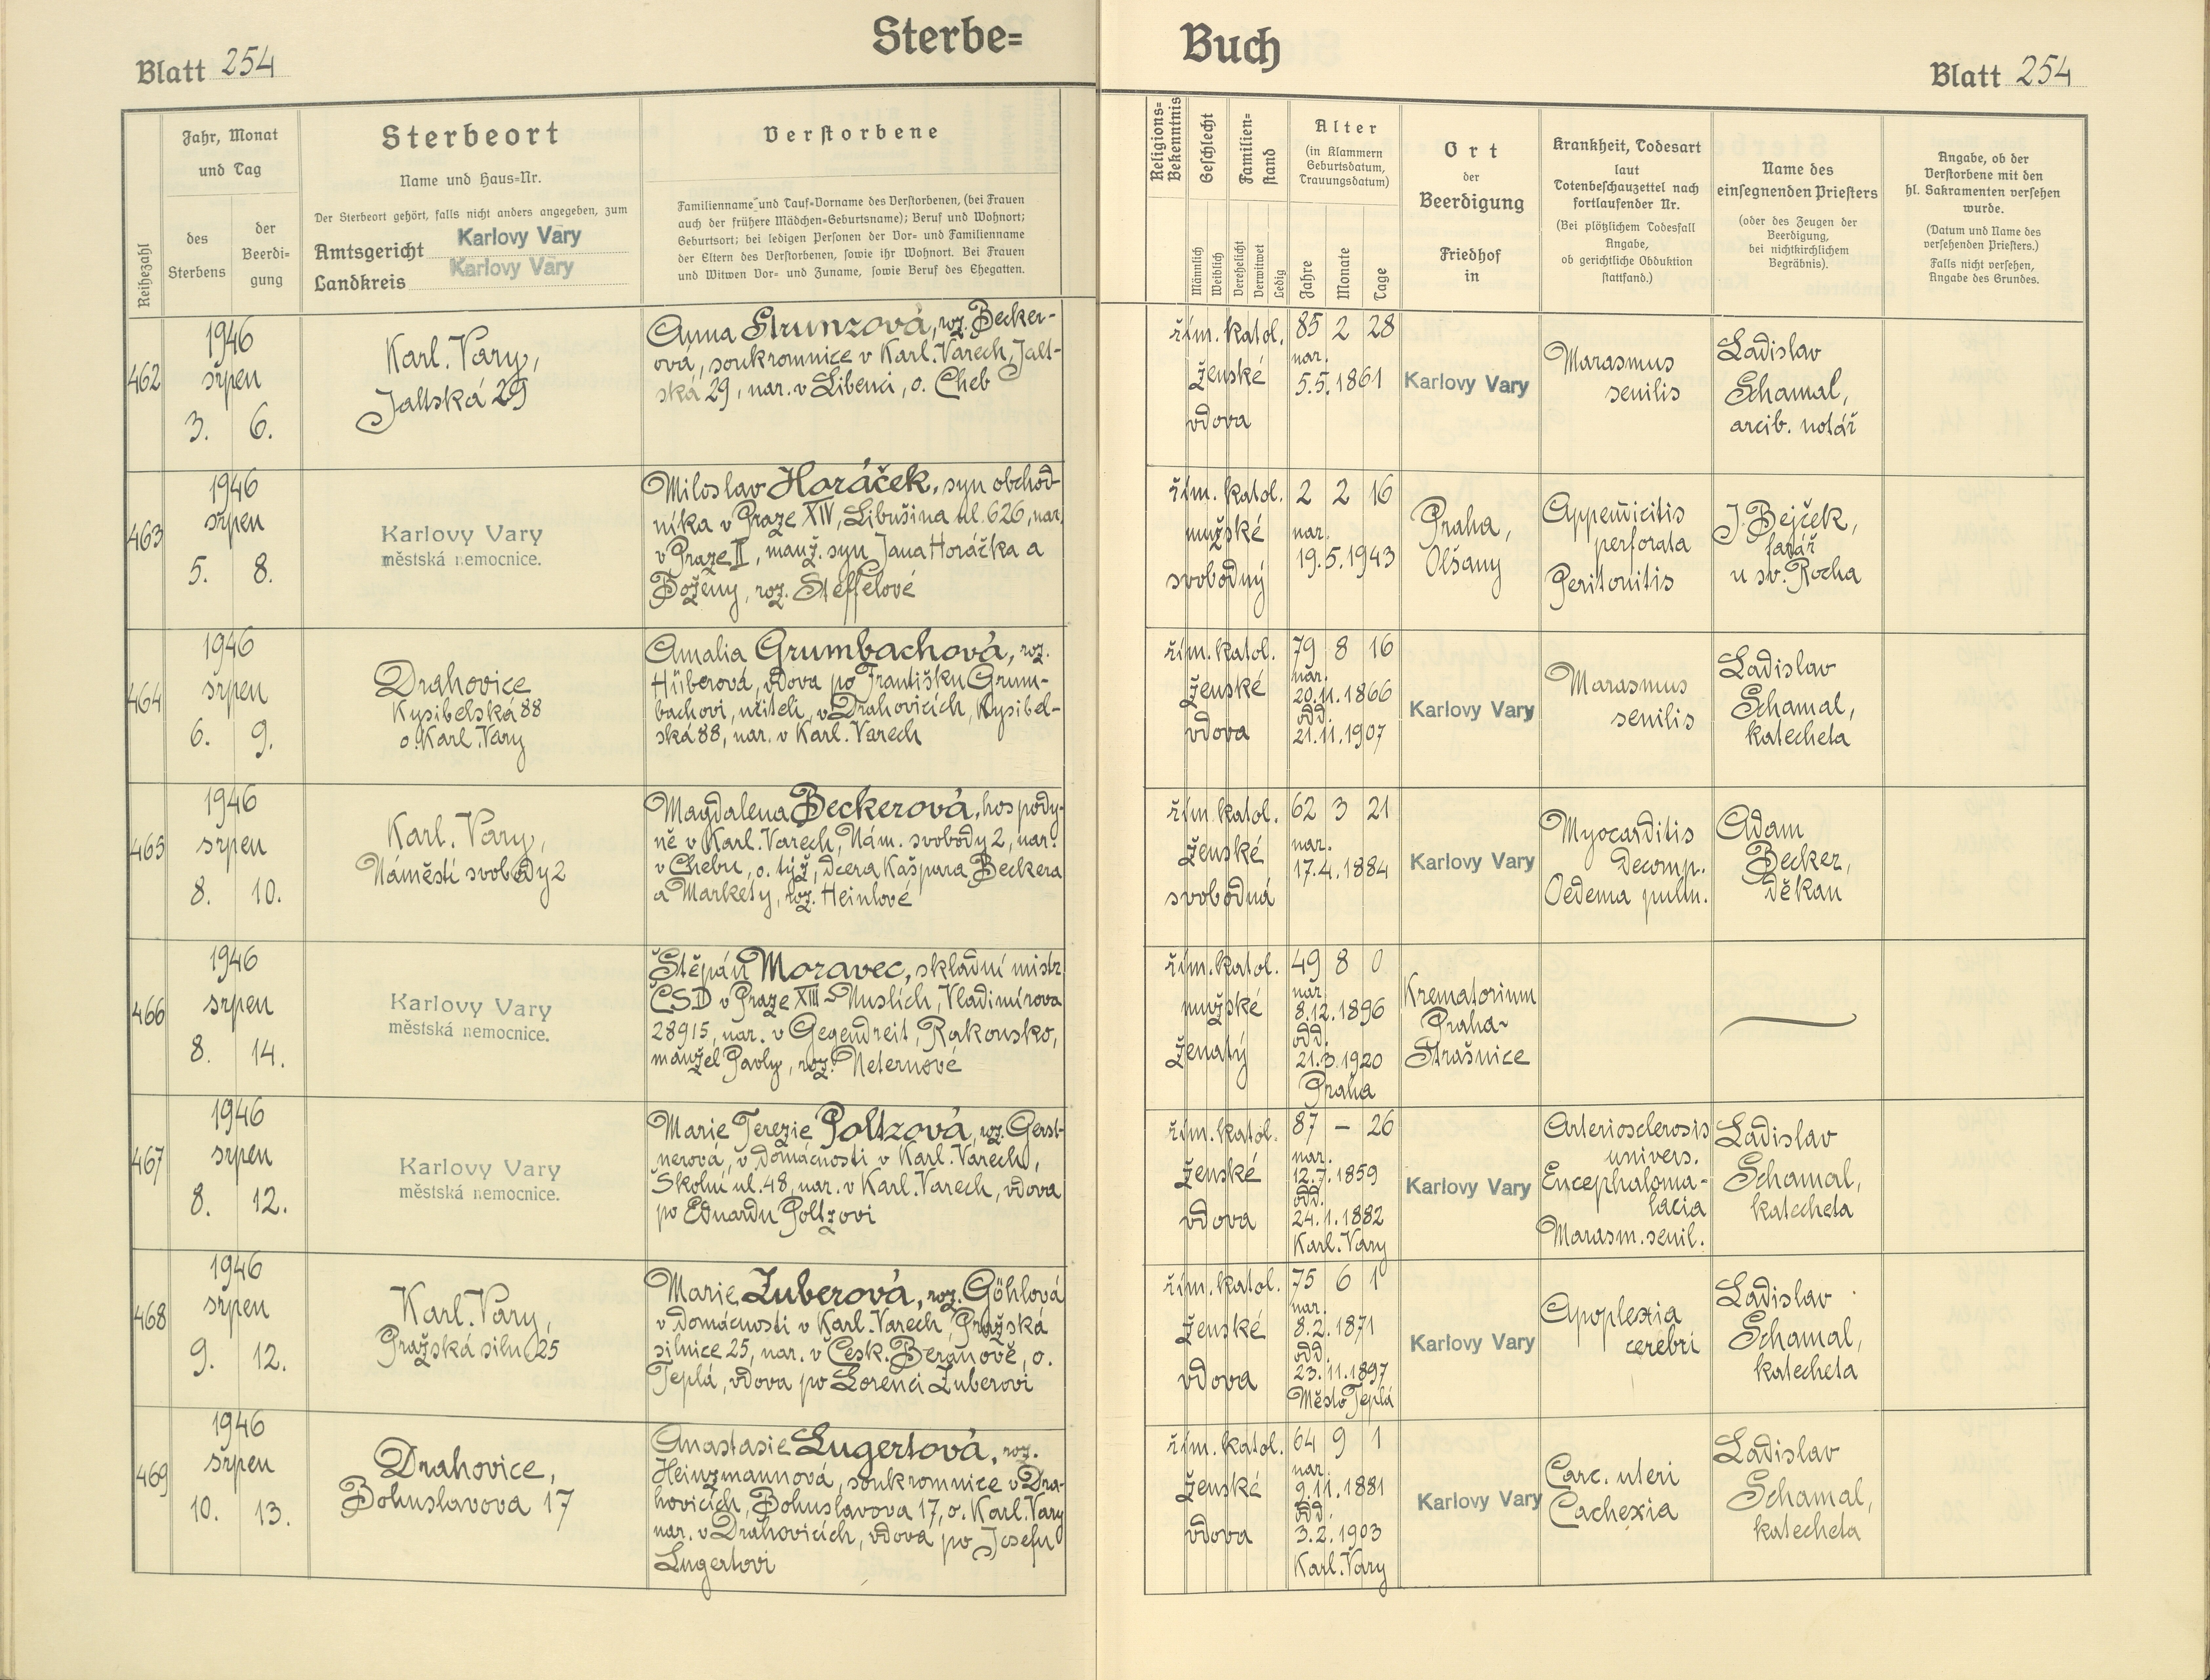 Sterbe=
Buch
Blatt 254
Blatt 254
Reihezahl
Jahr, Monat
und Tag
des
Sterbens
der
Beerdi=
gung
Sterbeort
Name und Haus=Nr.
Der Sterbeort gehört, falls nicht anders angegeben, zum
Amtsgericht Karlovy Vary
Landkreis Karlovy Vary
Verstorbene
Familienname und Tauf=Vorname des Verstorbenen, (bei Frauen
auch der frühere Mädchen=Geburtsname); Beruf und Wohnort;
Geburtsort; bei ledigen Personen der Vor= und Familienname
der Eltern des Verstorbenen, sowie ihr Wohnort. Bei Frauen
und Witwen Vor= und Zuname, sowie Beruf des Ehegatten.
Religions=
Bekenntnis
Geschlecht
Männlich
Weiblich
Familien=
stand
Verehelicht
Verwitwet
Ledig
Alter
(in Klammern
Geburtsdatum,
Trauungsdatum)
Jahre
Monate
Tage
Ort
der
Beerdigung
Friedhof
in
Krankheit, Todesart
laut
Totenbeschauzettel nach
fortlaufender Nr.
(Bei plötzlichem Todesfall
Angabe,
ob gerichtliche Obduktion
stattfand.)
Name des
einsegnenden Priesters
(oder des Zeugen der
Beerdigung,
bei nichtkirchlichem
Begräbnis).
Angabe, ob der
Verstorbene mit den
hl. Sakramenten versehen
wurde.
(Datum und Name des
versehenden Priesters.)
Falls nicht versehen,
Angabe des Grundes.
462
1946
srpen
3. 6.
Karl. Vary,
Jaltská 29
Anna Strunzová, roz. Becker-
ová, soukromnice v Karl. Varech, Jalt-
ská 29, nar. v Libenci, o. Cheb
řím. katol.
ženské
vdova
85 2 28
nar.
5.5.1861
Karlovy Vary
Marasmus
senilis
Ladislav
Schamal,
arcib. notář
463
1946
srpen
5. 8.
Karlovy Vary
městská nemocnice.
Miloslav Horáček, syn obchod-
níka v Praze XIV, Libušina ul. 626, nar.
v Praze II, manž. syn Jana Horáčka a
Boženy, roz. Steffelové
řím. katol.
mužské
svobodný
2 2 16
nar.
19.5.1943
Praha,
Olšany
Appendicitis
perforata
Peritonitis
J. Bejček,
farář
u sv. Rocha
464
1946
srpen
6. 9.
Drahovice
Kysibelská 88
o. Karl. Vary
Amalia Grumbachová, roz.
Hüberová, vdova po Františku Grum-
bachovi, učiteli, v Drahovicích, Kysibel-
ská 88, nar. v Karl. Varech
řím. katol.
ženské
vdova
79 8 16
nar.
20.11.1866
odd.
21.11.1907
Karlovy Vary
Marasmus
senilis
Ladislav
Schamal,
katecheta
465
1946
srpen
8. 10.
Karl. Vary,
Náměstí svobody 2
Magdalena Beckerová, hospody-
ně v Karl. Varech, Nám. svobody 2, nar.
v Chebu, o. týž, dcera Kašpara Beckera
a Markety, roz. Heinlové
řím. katol.
ženské
svobodná
62 3 21
nar.
17.4.1884
Karlovy Vary
Myocarditis
decomp.
Oedema pulm.
Adam
Becker,
děkan
466
1946
srpen
8. 14.
Karlovy Vary
městská nemocnice.
Štěpán Moravec, skladní mistr
ČSD v Praze XIII - Nuslích, Vladimírova
28915, nar. v Gegendreit, Rakousko,
manžel Pavly, roz. Neternové
řím. katol.
mužské
ženatý
49 8 0
nar.
8.12.1896
odd.
21.3.1920
Praha
Krematorium
Praha-
Strašnice
467
1946
srpen
8. 12.
Karlovy Vary
městská nemocnice.
Marie Terezie Poltzová, roz. Gerst-
nerová, v domácnosti v Karl. Varech,
Školní ul. 48, nar. v Karl. Varech, vdova
po Eduardu Poltzovi
řím. katol.
ženské
vdova
87 – 26
nar.
12.7.1859
odd.
24.1.1882
Karl. Vary
Karlovy Vary
Arteriosclerosis
univers.
Encephaloma-
lacia
Marasm. senil.
Ladislav
Schamal,
katecheta
468
1946
srpen
9. 12.
Karl. Vary,
Pražská siln. 25
Marie Zuberová, roz. Göhlová
v domácnosti v Karl. Varech, Pražská
silnice 25, nar. v Česk. Beranově, o.
Teplá, vdova po Lorenci Zuberovi
řím. katol.
ženské
vdova
75 6 1
nar.
8.2.1871
odd.
23.11.1897
Město Teplá
Karlovy Vary
Apoplexia
cerebri
Ladislav
Schamal,
katecheta
469
1946
srpen
10. 13.
Drahovice,
Bohuslavova 17
Anastasie Lugertová, roz.
Heinzmannová, soukromnice v Dra-
hovicích, Bohuslavova 17, o. Karl. Vary
nar. v Drahovicích, vdova po Josefu
Lugertovi
řím. katol.
ženské
vdova
64 9 1
nar.
9.11.1881
odd.
3.2.1903
Karl. Vary
Karlovy Vary
Carc. uteri
Cachexia
Ladislav
Schamal,
katecheta